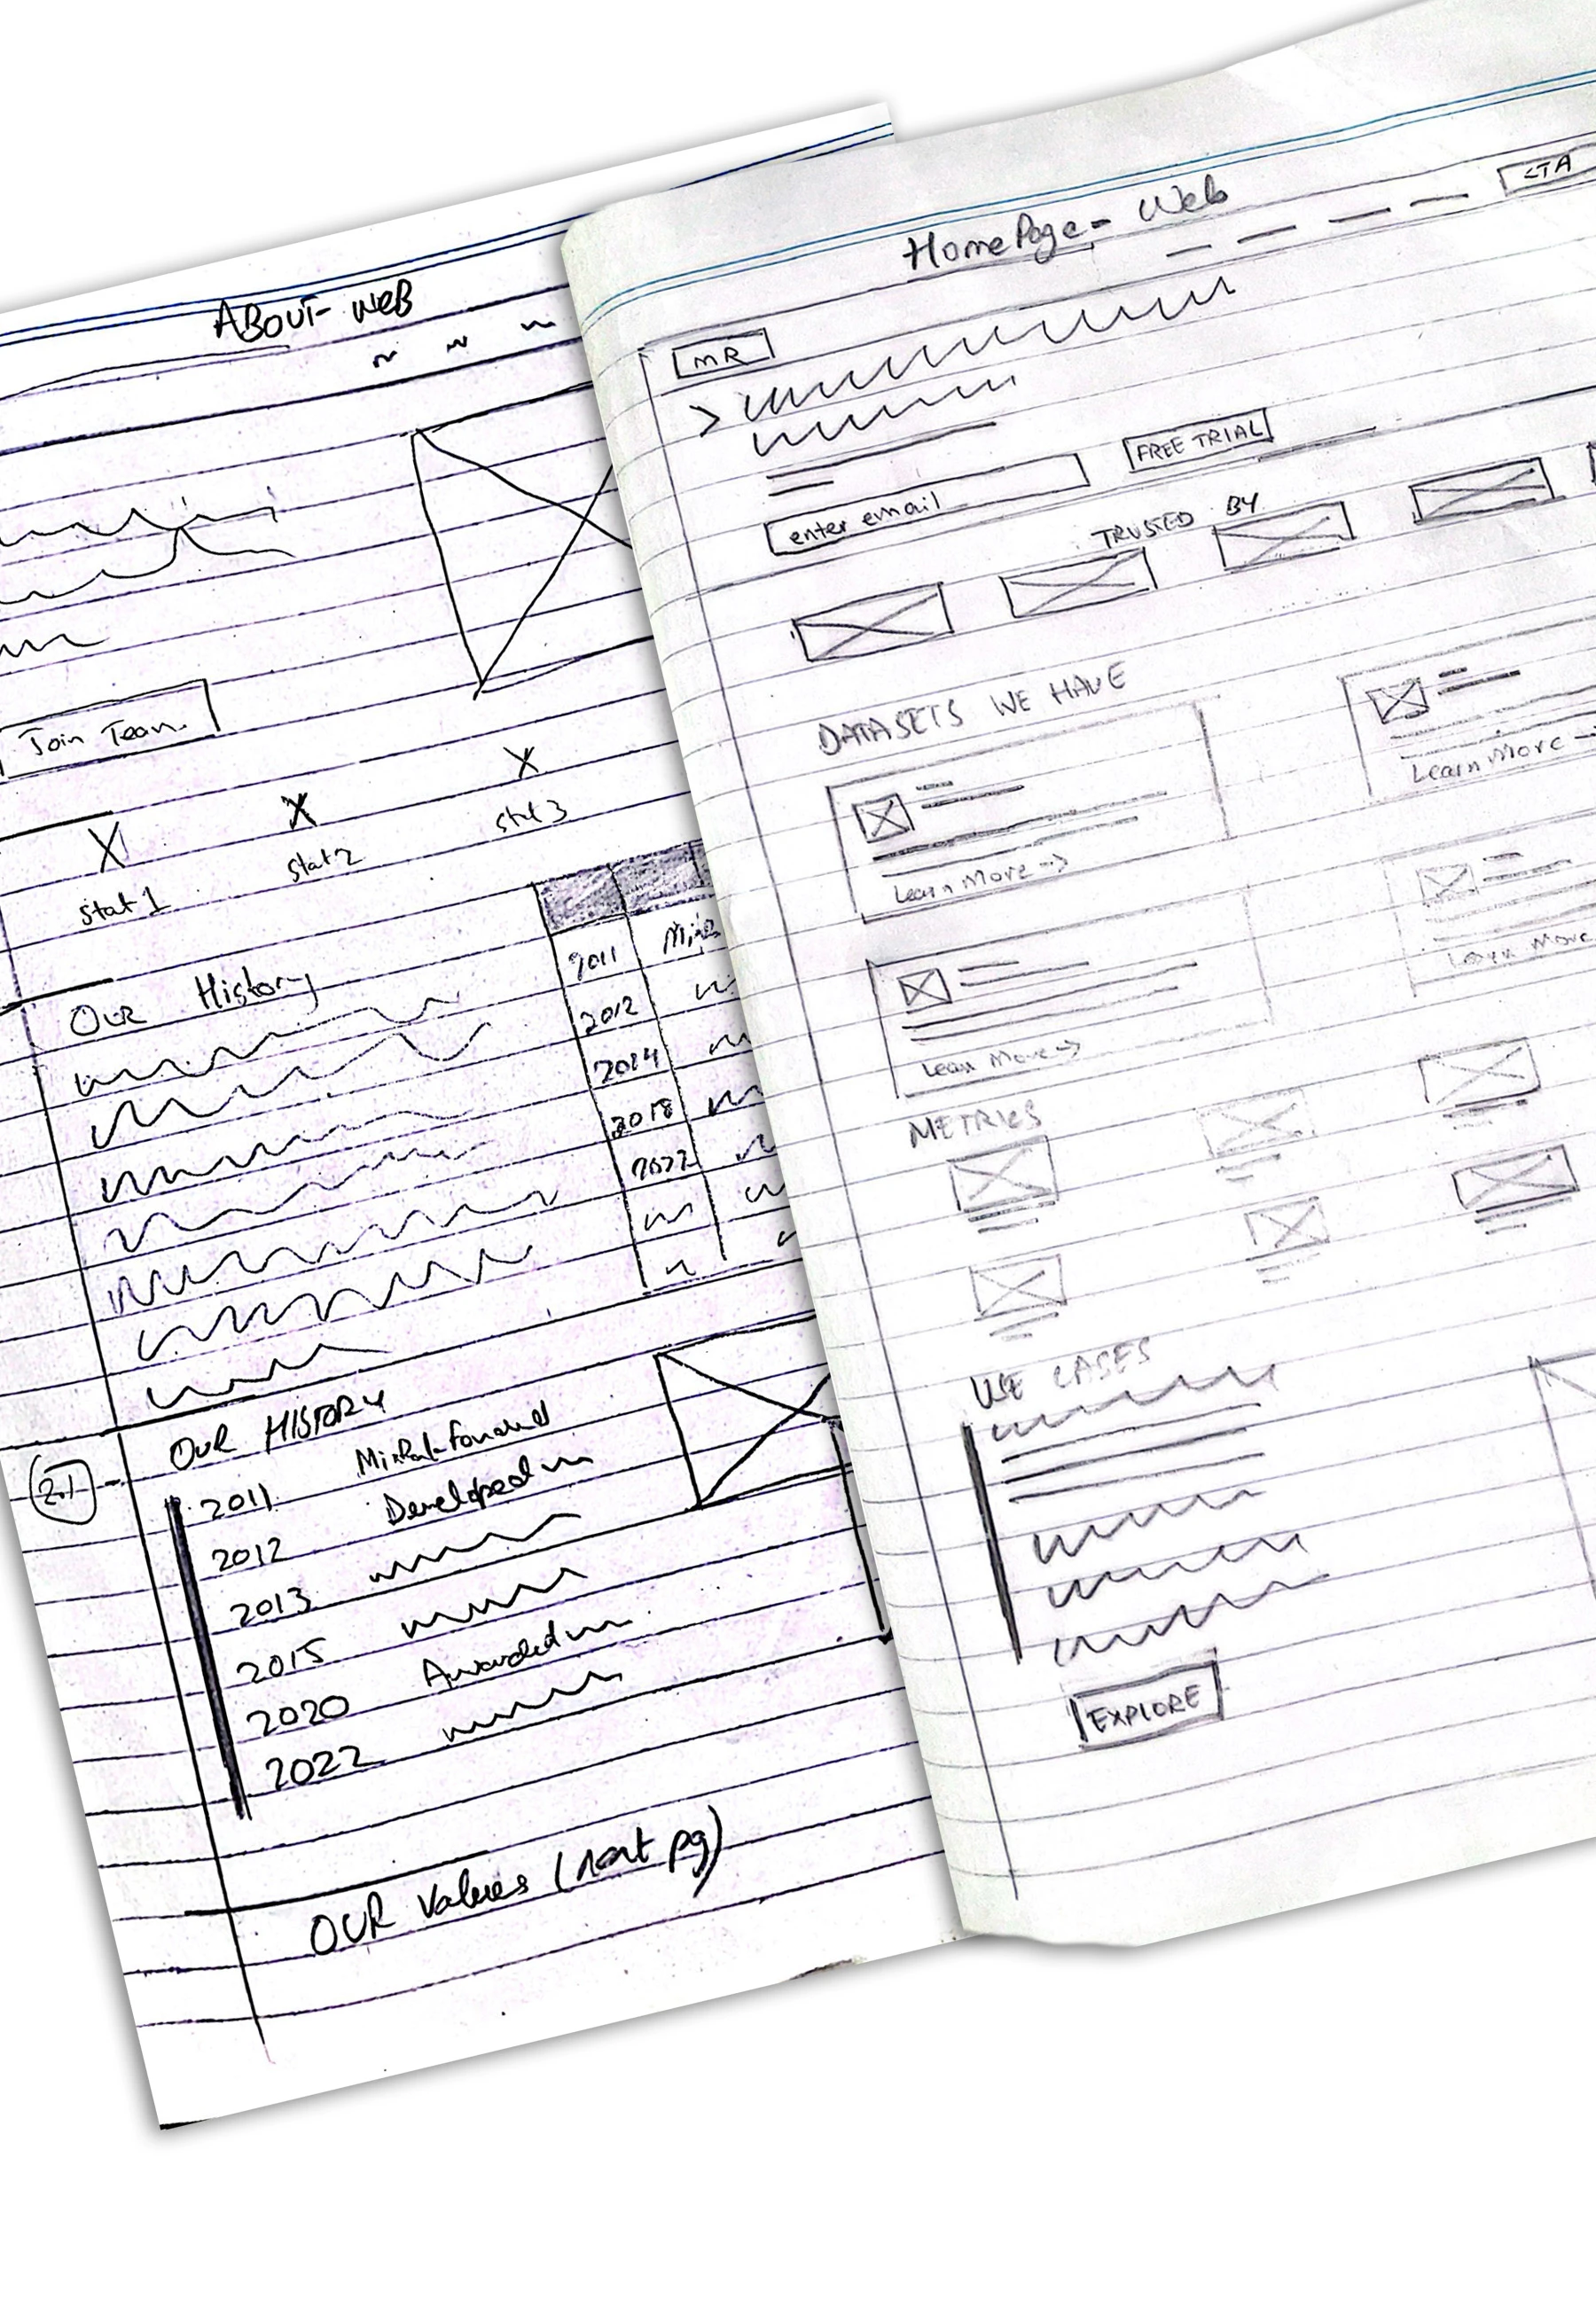 ABOUT- WEB
Join Team
stat 1
stat 2
stat 3
OUR History
2011
2012
2014
2018
2022
2.1
OUR HISTORY
2011
2012 Developed
2013
2015
2020 Awarded
2022
OUR Values (next pg)
HomePage - Web
CTA
MR
enter email
FREE TRIAL
TRUSTED BY
DATASETS WE HAVE
Learn More →
Learn More →
Learn More →
Learn More
METRICS
USE CASES
EXPLORE